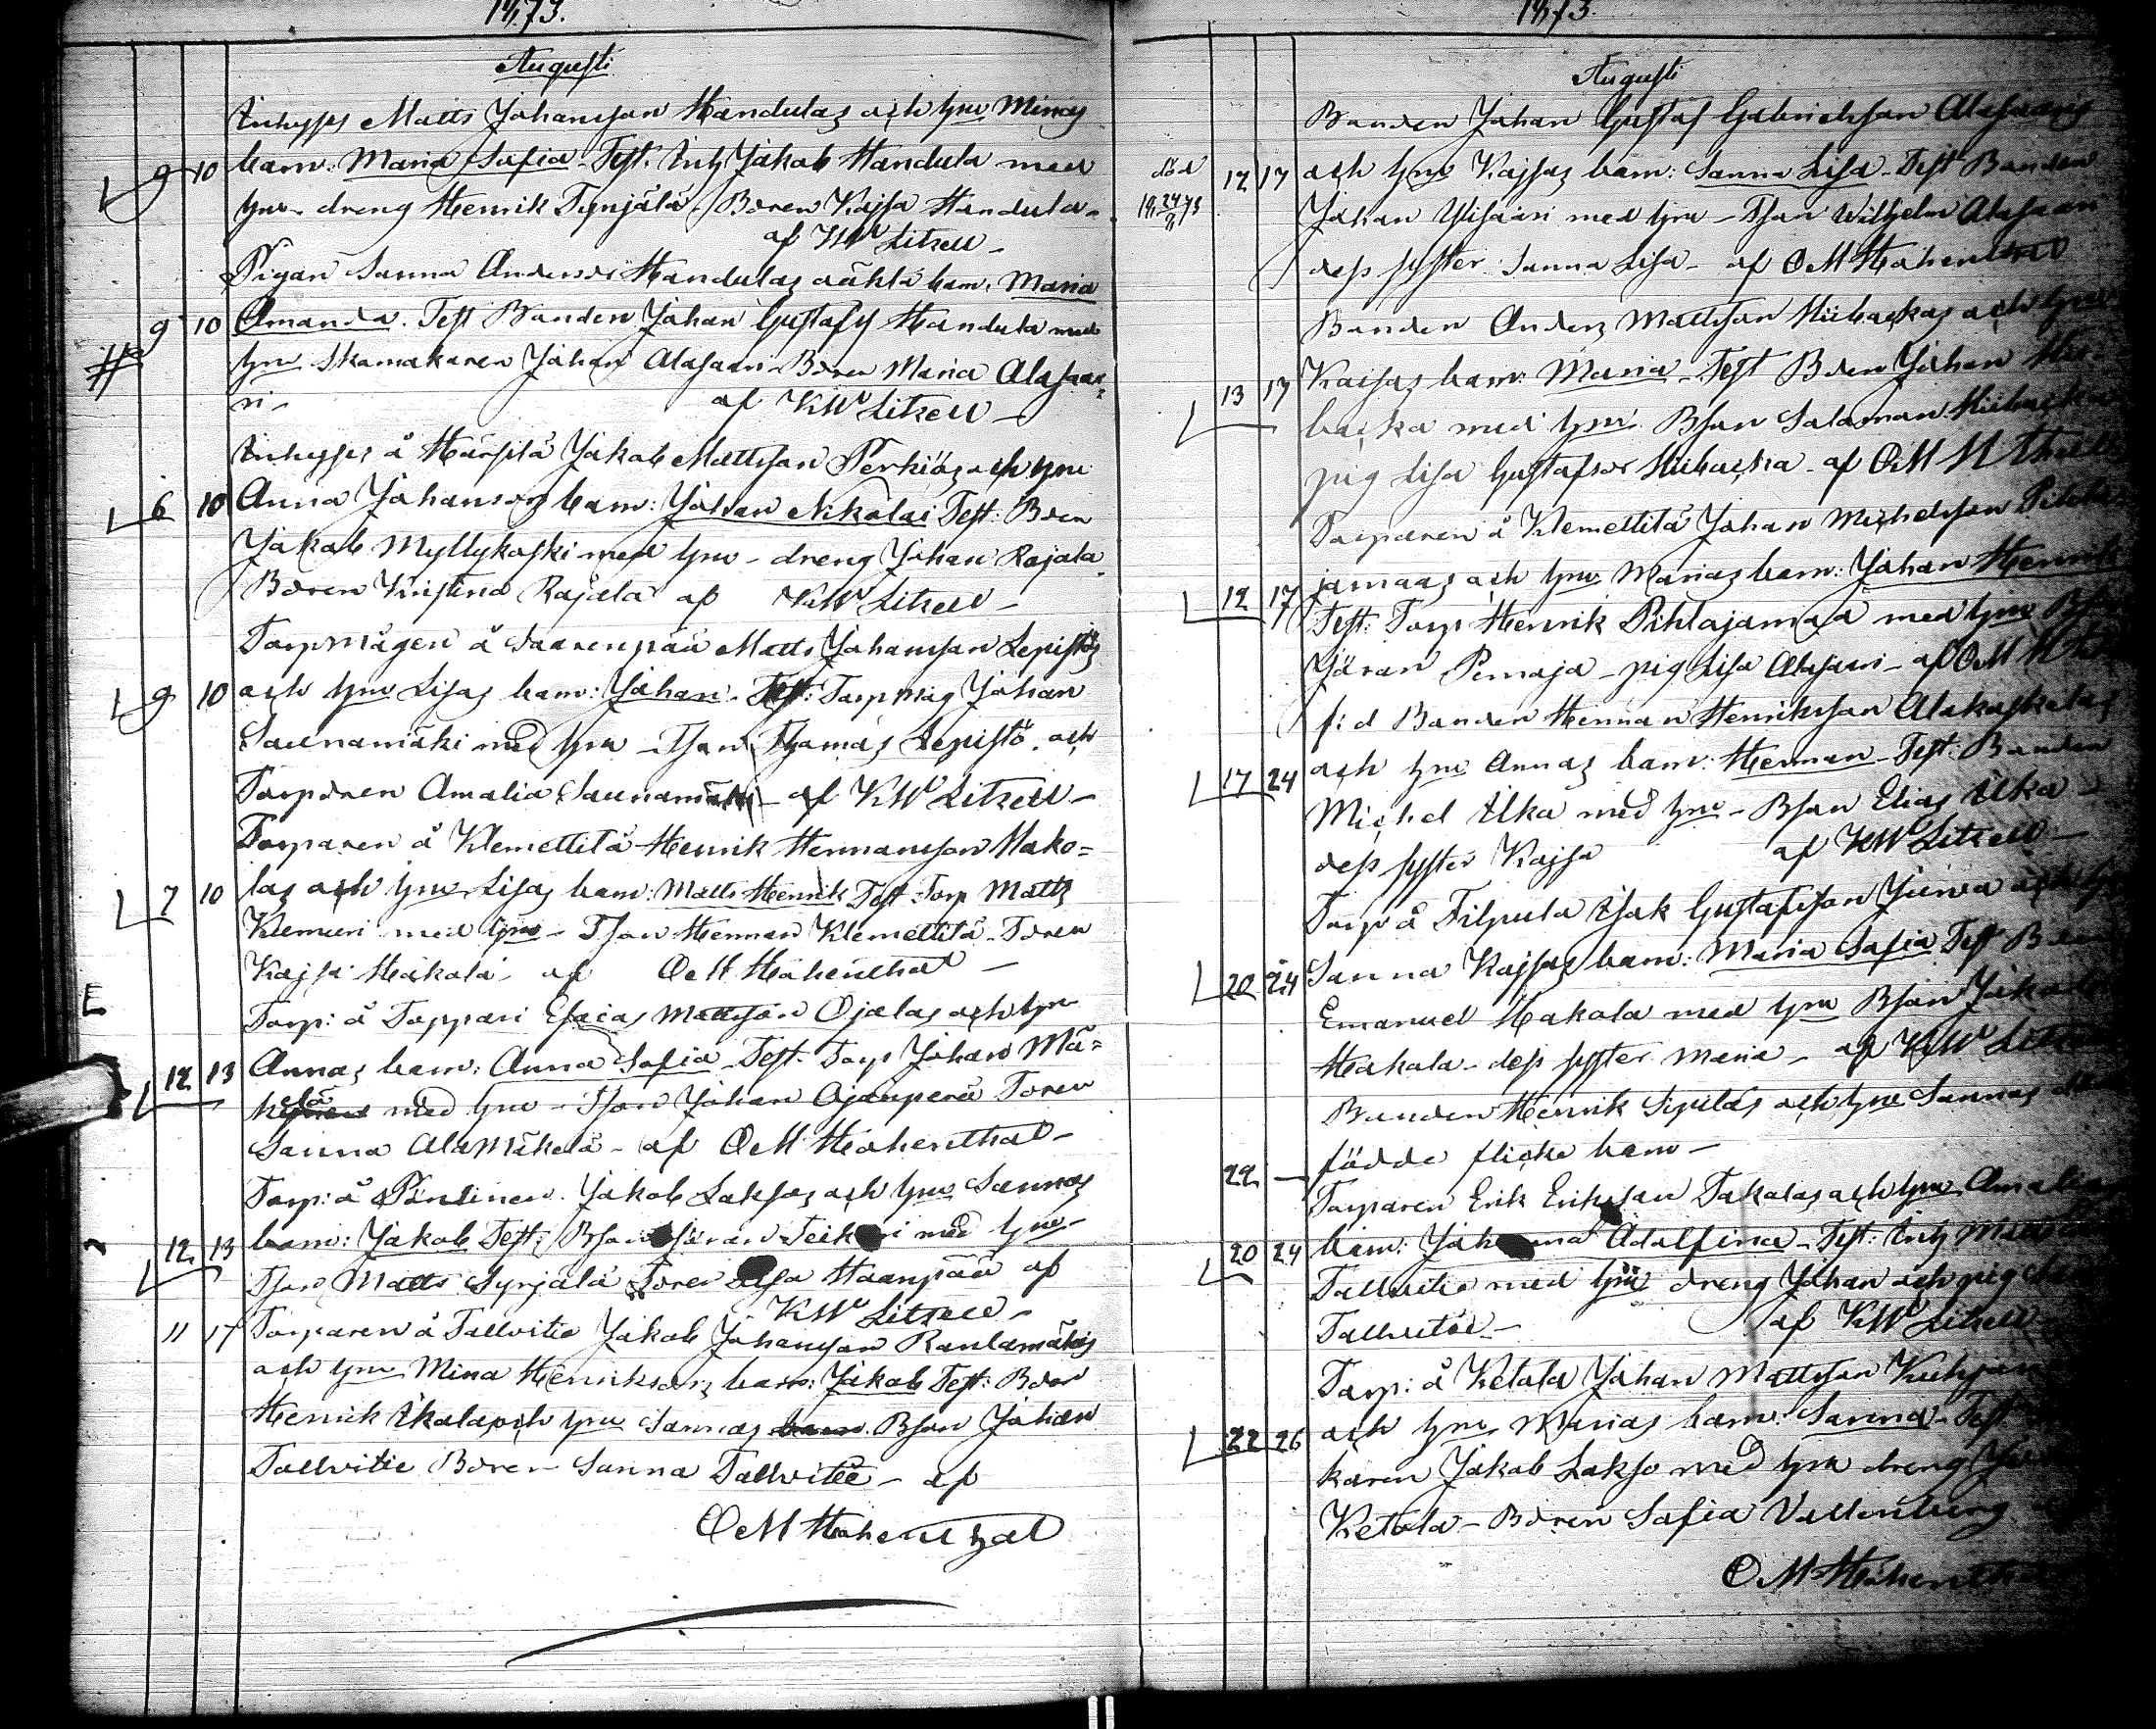 1873.
Augusti
Inhyses Matts Johansson Handulas och hru Minas
9 10 barn: Maria Sofia. Test. Inh. Jakob Handula med
hru. dreng Henrik Tynjälä. Bdren Kajsa Handula.
af KW Litzell
Pigan Sanna Andersdr Handulas oäkta barn. Maria
9 10 Amanda. Test Bonden Johan Gustafs Handula med
hru Skomakaren Johan Alasaari. Bdren Maria Alasaa-
ri. af KW Litzell
Inhyses å Härsilä Jakob Mattsson Perkiös och hru
6 10 Anna Johansdrs barn: Johan Nikolai Test: Bden
Jakob Myllykoski med hru. dreng Johan Rajala
Bdren Kristina Rajala af KW Litzell
Torpmågen å Saarenpää Matts Johansson Lepistös
9 10 och hru Lisas barn: Johan. Test: Torpmåg Johan
Saunamäki med hru. Tson Thomas Lepistö. och
Torpdren Amalia Saunamäki. af KW Litzell
Torparen å Klemettilä Henrik Hermansson Hako=
7 10 las och hru Lisas barn: Matts Henrik Test: Torp Matts
Klemeri med hru. Tson Herman Klemettilä. Tdren
Kajsa Hakola. af OM Hohenthal
Torp: å Toppari Esaias Mattsson Ojalas och hru
12 13 Annas barn: Anna Sofia. Test. Torp Johan Mä=
kelä med hru. Tson Johan Ojanperä Tdren
Sanna AlaMäkelä. af OM Hohenthal
Torp: å Pöntinen. Jakob Laksos och hru Sannas
12 13 barn: Jakob Test: Bson Göran med hru.
Tson Matts Synjälä Tdren Haanpää af
KW Litzell
11 17 Torparen å Tallvitie Jakob Johansson Rantamäkis
och hru Mina Henriksdrs barn: Jakob Test: Bden
Henrik Ikola och hru Sannas barn. Bson Johan
Tallvitie Bdren Sanna Tallvitie. af
OM Hohenthal
1873.
Augusti
Bonden Johan Gustaf Gabrielsson Alasaaris
Död 12 17 och hru Kajsas barn: Sanna Lisa. Test Bonden
18 24/8 73 Johan Ylisaari med hru. Tson Wilhelm Alasaari
dess syster Sanna Lisa. af OM Hohenthal
Bonden Anders Mattsson Hiibackas och hru
13 17 Kajsas barn: Maria. Test Bden Johan Hii-
backa med hru. Bson Salomon Hiibacka
pig Lisa Gustafsdr Hiibacka. af OM
Torparen å Klemettilä Johan Michelsson Pihla
12 17 jamaas och hru Marias barn: Johan Henrik
Test: Torp Henrik Pihlajamaa med hru
Göran Pernaja. pig Lisa Alasaari. af OM
f:d Bonden Herman Henriksson Alakoskelas
17 24 och hru Annas barn: Herman. Test: Bonden
Michel Ilka med hru. Bson Elias Ilka
dess syster Kajsa af KW Litzell
Torp å Filpula Isak Gustafsson Juina och
20 24 Sanna Kajsas barn: Maria Sofia Test Bden
Emanuel Hakola med hru Bson Jakob
Hakola. dess syster Maria. af KW
Bonden Henrik Sipilas och hru Sannas
22 — födde flicke barn
Torparen Erik Eriksson Takalas och hru Amalias
20 24 barn: Johanna Adolfina. Test: Inh
Tallvitie med hru dreng Johan och pig
Tallvitie. af KW Litzell
Torp: å Ketola Johan Mattsson
22 26 och hru Marias barn: Sanna. Test
karen Jakob Lakso med hru dreng
Ketola. Bdren Sofia Vallenberg
OM Hohenthal